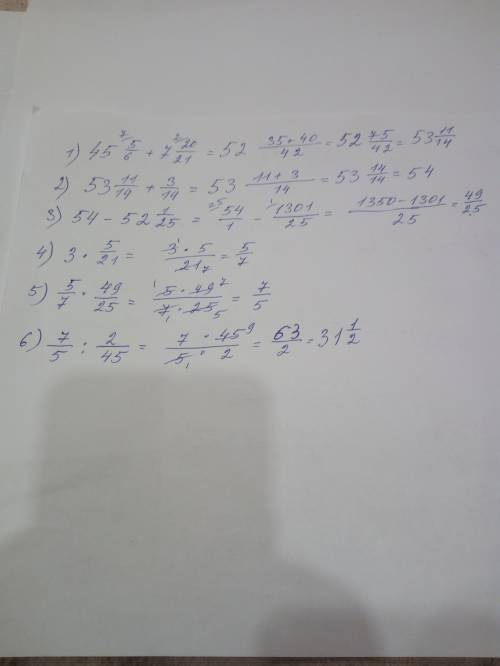 1) 45 5/6 + 7 20/21 = 52 (35+40)/42 = 52 75/42 = 53 11/14
2) 53 11/14 + 3/14 = 53 (11+3)/14 = 53 14/14 = 54
3) 54 - 52 1/25 = 54/1 - 1301/25 = (1350-1301)/25 = 49/25
4) 3 · 5/21 = (3 · 5)/21 = 5/7
5) 5/7 · 49/25 = (5 · 49)/(7 · 25) = 7/5
6) 7/5 : 2/45 = (7 · 45)/(5 · 2) = 63/2 = 31 1/2